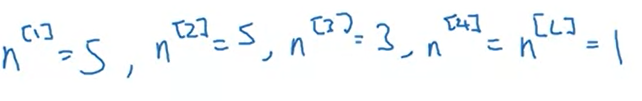 n^[1] = 5, n^[2] = 5, n^[3] = 3, n^[4] = n^[L] = 1